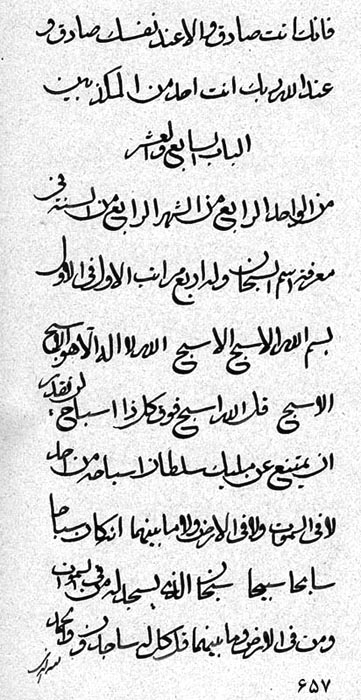 فانك انت صادق والا عند نفسك صادق و
عند الله ربك انت احد من المكذبين
الباب السابع والعشر
من الواحد الرابع من الشهر الرابع من السنة فى
معرفة اسم السبحان وله اربع مراتب الاول فى الاول
بسم الله الاسبح الاسبح الله لا اله الا هو الاسبح
الاسبح قل الله اسبح فوق كل ذا اسباح لن يقدر
ان يمتنع عن مليك سلطان اسباحه من احد
لا فى السموات ولا فى الارض ولا ما بينهما انه كان سباحا
سابحا سبيحا سبحان الذى يسجد له من فى السموات
ومن فى الارض وما بينهما قل كل له ساجدون والحمد
٦٥٧